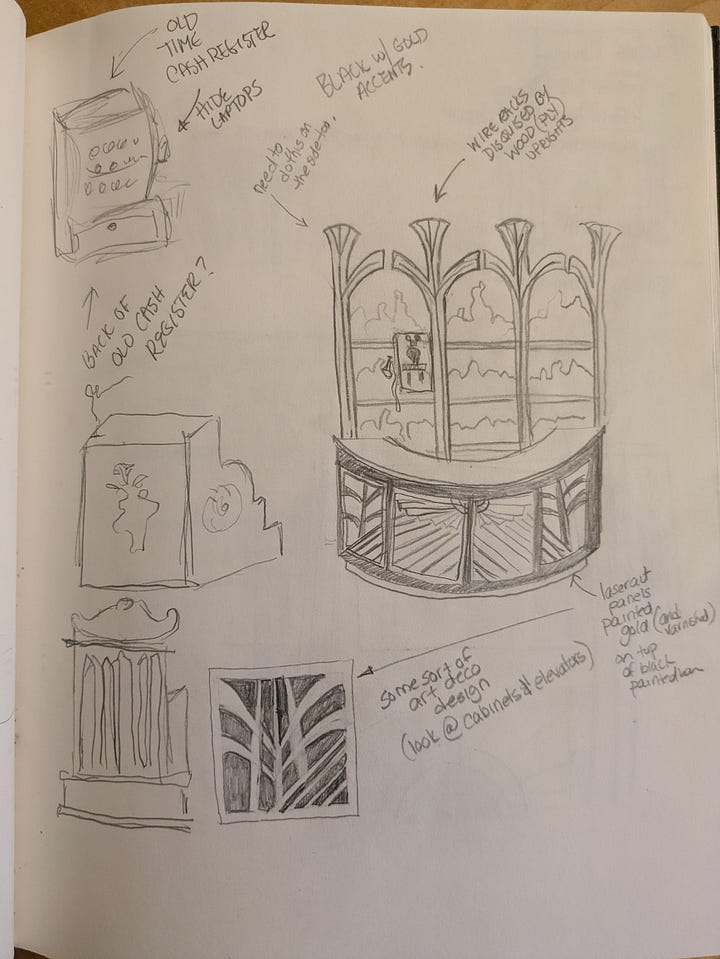 OLD
TIME
CASH REGISTER
HIDE
LAPTOPS
BLACK W/ GOLD
ACCENTS.
need to
do this on
the side too.
WIRE RACKS
DISQUISED BY
WOOD (PLY)
UPRIGHTS
BACK OF
OLD CASH
REGISTER?
lasercut
panels
painted
gold (and
varnished)
on top
of black
painted bar
some sort of
art deco
design
(look @ cabinets & elevators)